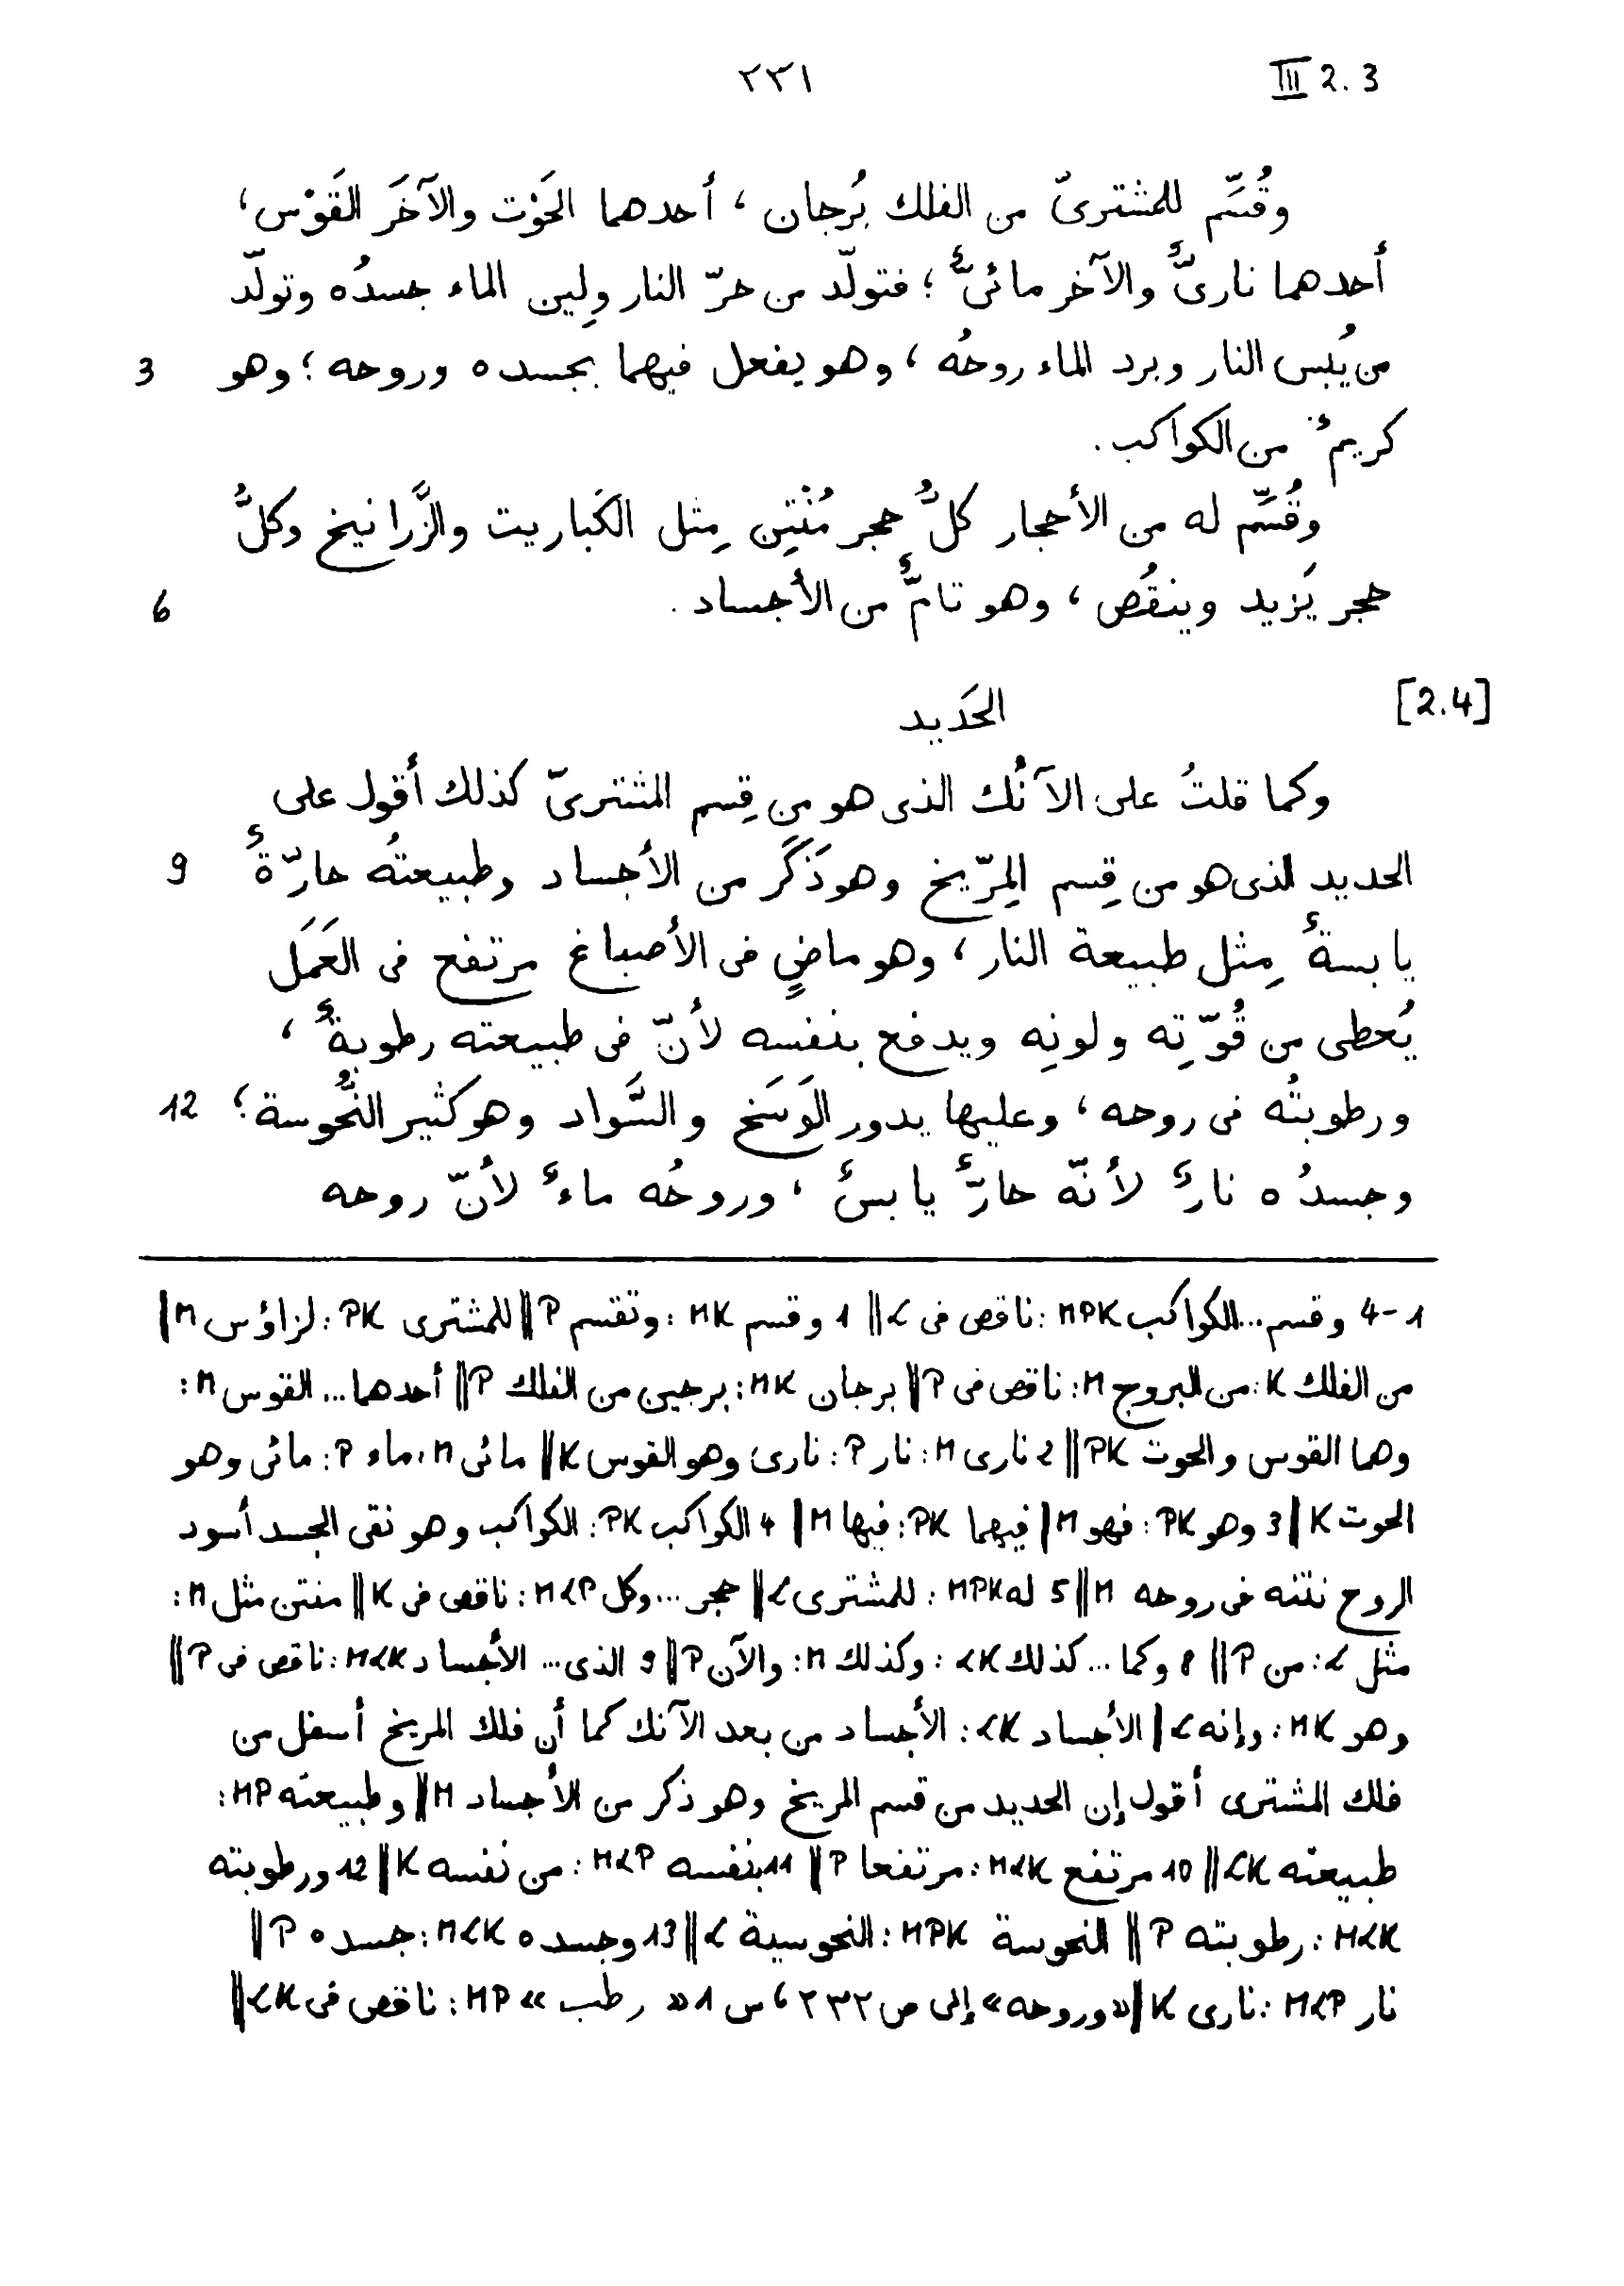 ٢٣١ III 2.3
وقُسِّم للمشترىّ من الفلك بُرجان ، أحدهما الحَوْت والآخَر القَوْس ،
أحدهما نارىٌّ والآخر مائىٌّ ؛ فتولّد من حرّ النار ولِين الماء جسدُه وتولّد
من يُبس النار وبرد الماء روحُه ، وهو يفعل فيهما بجسده وروحه ؛ وهو 3
كريمٌ من الكواكب .
وقُسِّم له من الأحجار كلُّ حجر مُنْتِن مِثل الكَباريت والزَّرانيخ وكلُّ
حجر يَزيد وينقُص ، وهو تامٌّ من الأجساد . 6
[2.4] الحَديد
وكما قلتُ على الآنُك الذى هو من قِسم المشترىّ كذلك أقول على
الحديد الذى هو من قِسم المِرّيخ وهو ذَكَر من الأجساد وطبيعتُه حارّةٌ 9
يابسةٌ مِثل طبيعة النار ، وهو ماضٍ فى الأصباغ مرتفع فى العَمَل
يُعطى من قُوّتِه ولونِه ويدفع بنفسه لأنّ فى طبيعته رطوبةٌ ،
ورطوبتُه فى روحه ، وعليها يدور الوَسَخ والسَّواد وهو كثير النُّحُوسة ؛ 12
وجسدُه نارٌ لأنّه حارٌّ يابسٌ ، وروحُه ماءٌ لأنّ روحه
1-4 وقسم...الكواكب MPK : ناقص فى L || 1 وقسم MK : وتقسم P || للمشترى PK : لزاؤس M |
من الفلك K : من البروج M : ناقص فى P || برجان MK : برجين من الفلك P || أحدهما... القوس M :
وهما القوس والحوت PK || 2 نارى M : نار P : نارى وهو القوس K || مائى M : ماء P : مائى وهو
الحوت K || 3 وهو PK : فهو M | فيهما PK : فيها M | 4 الكواكب PK : الكواكب وهو نقى الجسد أسود
الروح نتنه فى روحه M || 5 له MPK : للمشترى L || حجر...وكل MLP : ناقص فى K || منتن مثل M :
مثل L : من P || 8 وكما ... كذلك LK : وكذلك M : والآن P || 9 الذى... الأجساد MLK : ناقص فى P ||
وهو MK : وإنه L | الأجساد LK : الأجساد من بعد الآنك كما أن فلك المريخ أسفل من
فلك المشترى أقول إن الحديد من قسم المريخ وهو ذكر من الأجساد M || وطبيعته MP :
طبيعته LK || 10 مرتفع MLK : مرتفعا P || 11 بنفسه MLP : من نفسه K || 12 ورطوبته
MLK : رطوبته P || النحوسة MPK : النحوسية L || 13 وجسده MLK : جسده P ||
نار MLP : نارى K | «وروحه» إلى ص ٢٣٢ ، س 1 « رطب » MP : ناقص فى LK ||